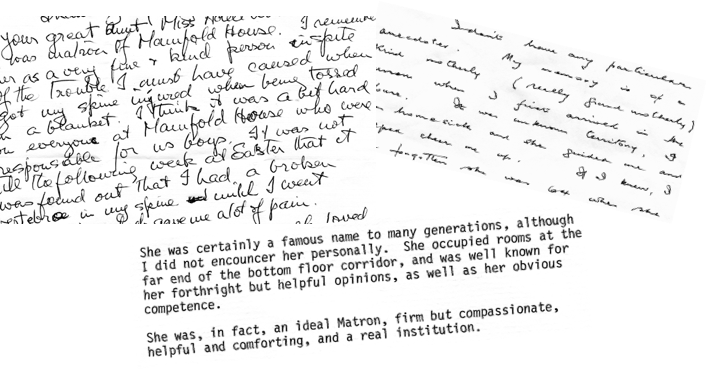 your great aunt, Miss
was matron of Manifold House. I remember
her as a very fine & kind person inspite
of the trouble I must have caused when
got my spine injured when being tossed
in a blanket. I think it was a bit hard
on everyone at Manifold House who were
responsable for us boys. It was not
till the following week at Easter that it
was found out that I had a broken
vertebrae in my spine until I went
gave me a lot of pain.
I don't have any particular
anecdotes. My memory is of a
kind motherly (really grand motherly)
when I first arrived in the
It was unknown territory, I
homesick and she guided me and
cheer me up. If I knew, I
forgotten she was when she
She was certainly a famous name to many generations, although
I did not encouncer her personally. She occupied rooms at the
far end of the bottom floor corridor, and was well known for
her forthright but helpful opinions, as well as her obvious
competence.
She was, in fact, an ideal Matron, firm but compassionate,
helpful and comforting, and a real institution.